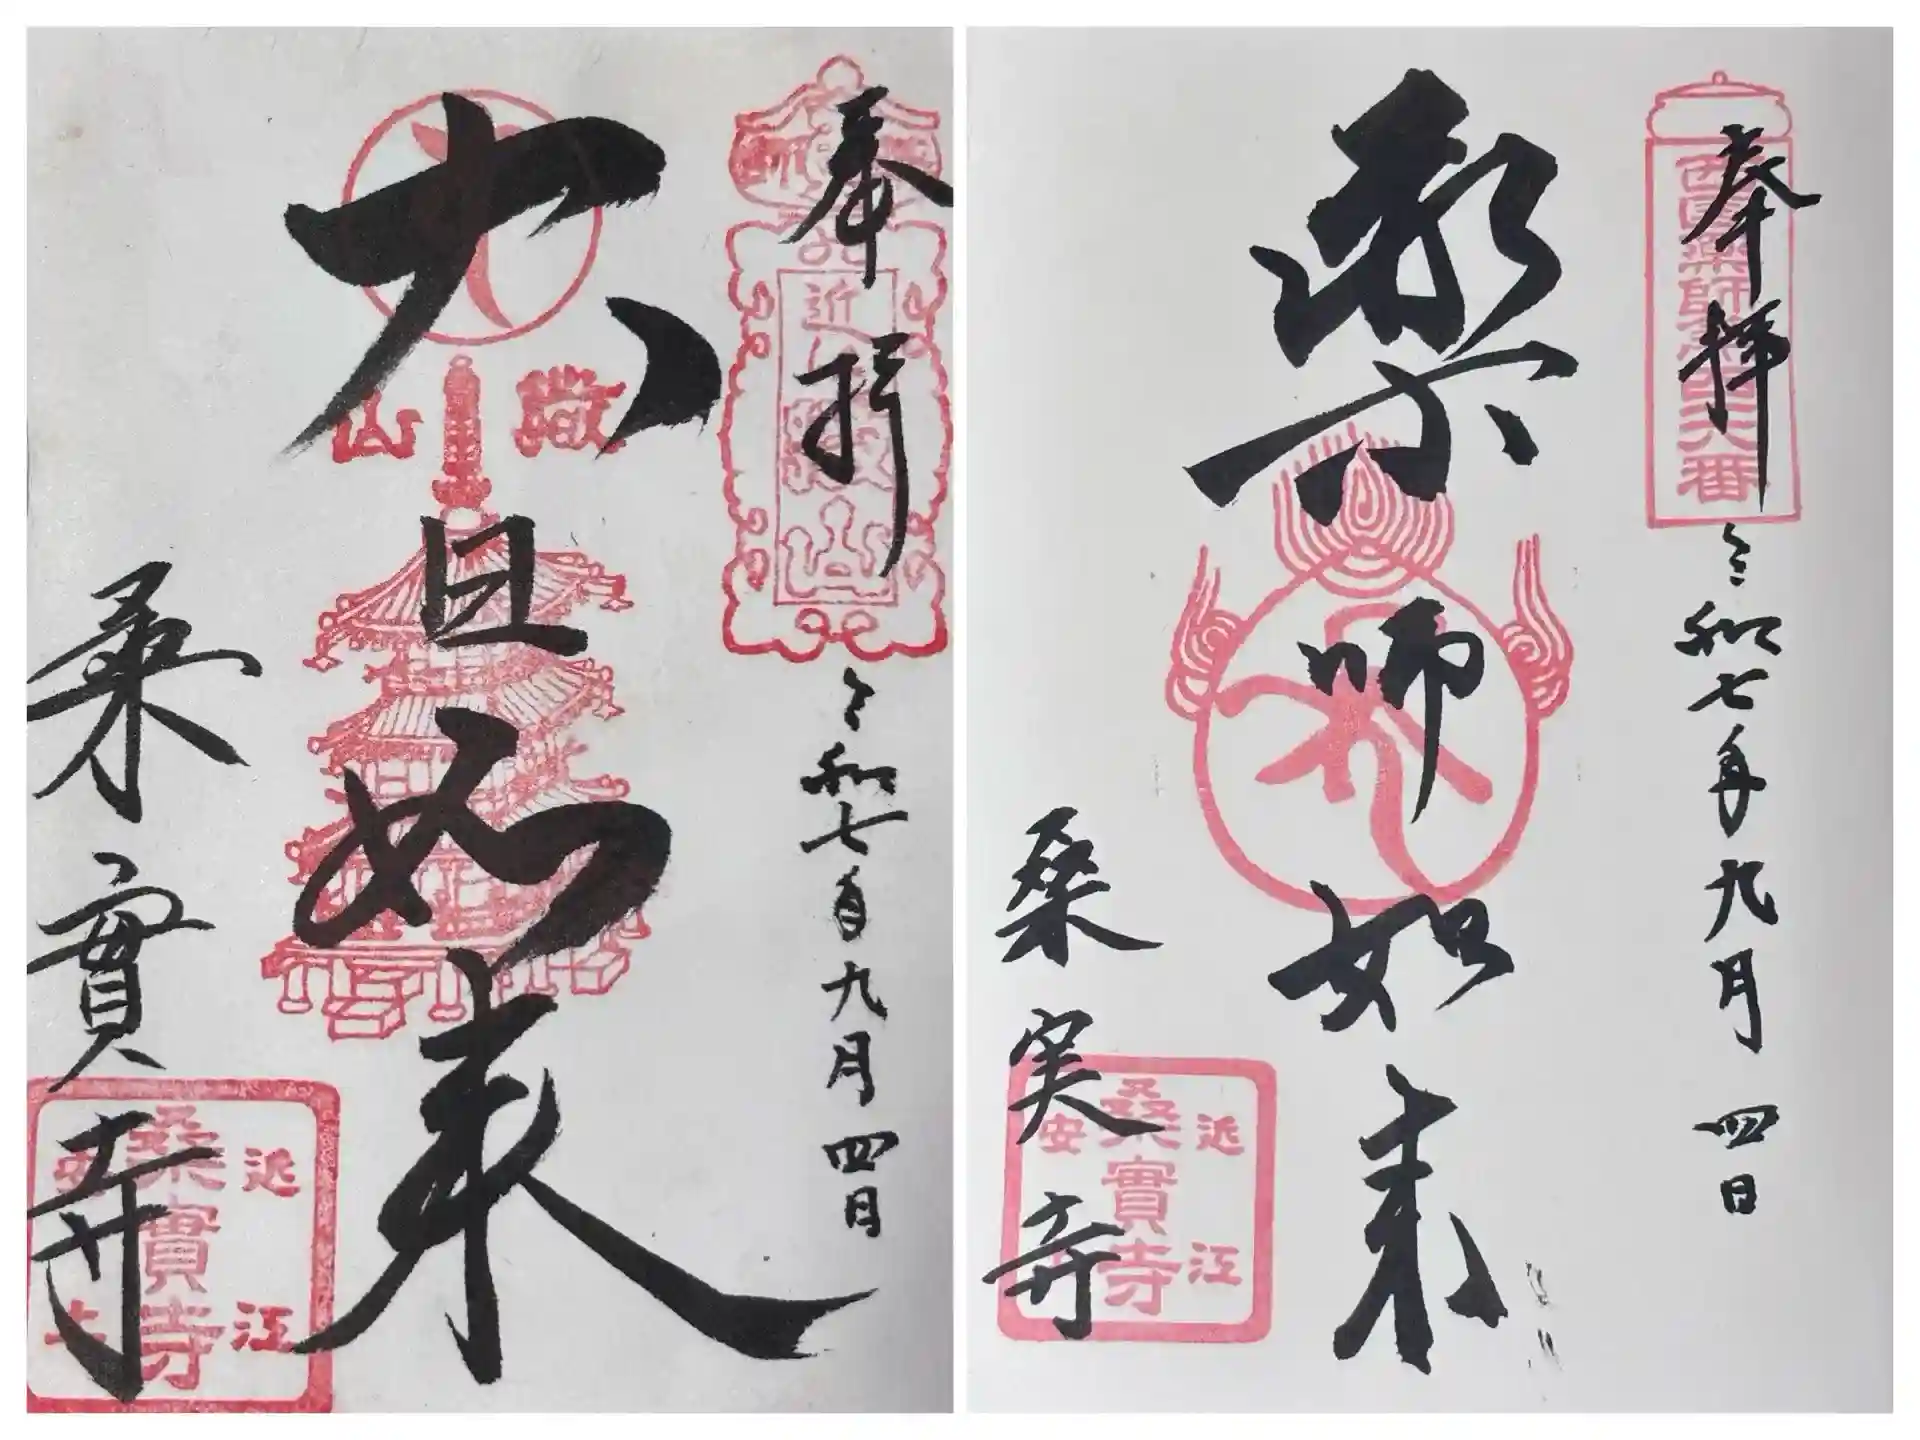 奉拝
令和七年九月四日
大日如来
桑實寺
近江
桑實寺
奉拝
西国薬師第四十六番
令和七年九月四日
薬師如来
桑実寺
近江
桑實寺
安土